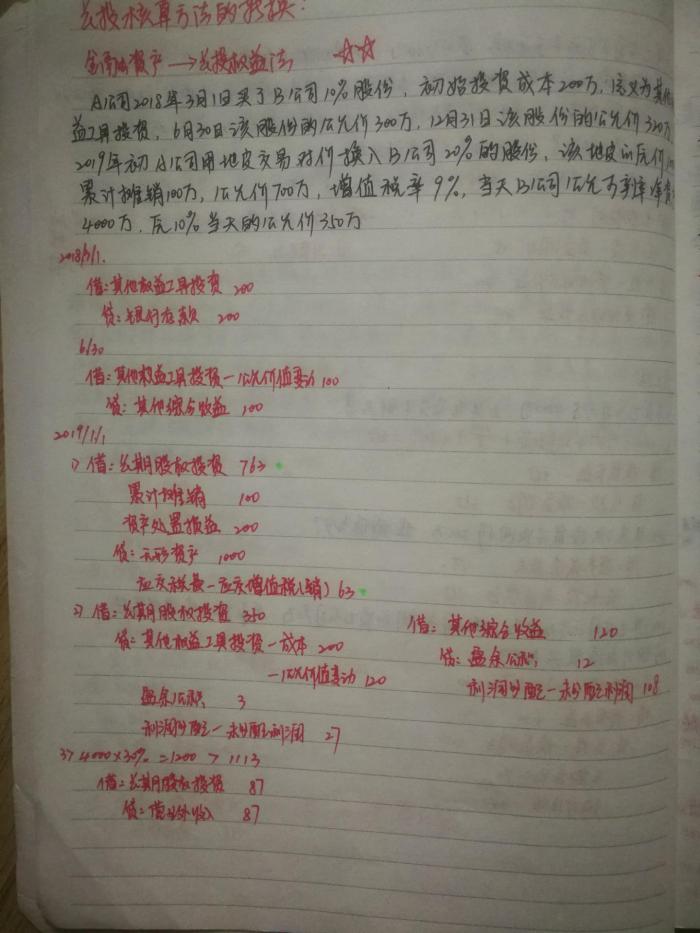 长投核算方法的转换:
金融资产→长投权益法 ☆☆
A公司2018年3月1日买了B公司10%股份,初始投资成本200万,定义为其他
益工具投资,6月30日该股份的公允价300万,12月31日该股份的公允价320万
2019年初A公司用地皮交易对价换入B公司20%的股份,该地皮的原价
累计摊销100万,公允价700万,增值税率9%,当天B公司公允可辨净资
4000万,原10%当天的公允价350万
2018/3/1.
借:其他权益工具投资 200
贷:银行存款 200
6/30
借:其他权益工具投资-公允价值变动 100
贷:其他综合收益 100
2019/1/1
1) 借:长期股权投资 763
累计摊销 100
资产处置损益 200
贷:无形资产 1000
应交税费-应交增值税(销) 63
2) 借:长期股权投资 350
贷:其他权益工具投资-成本 200
-公允价值变动 120
盈余公积 3
利润分配-未分配利润 27
借:其他综合收益 120
贷:盈余公积 12
利润分配-未分配利润 108
3) 4000×30%=1200 > 1113
借:长期股权投资 87
贷:营业外收入 87